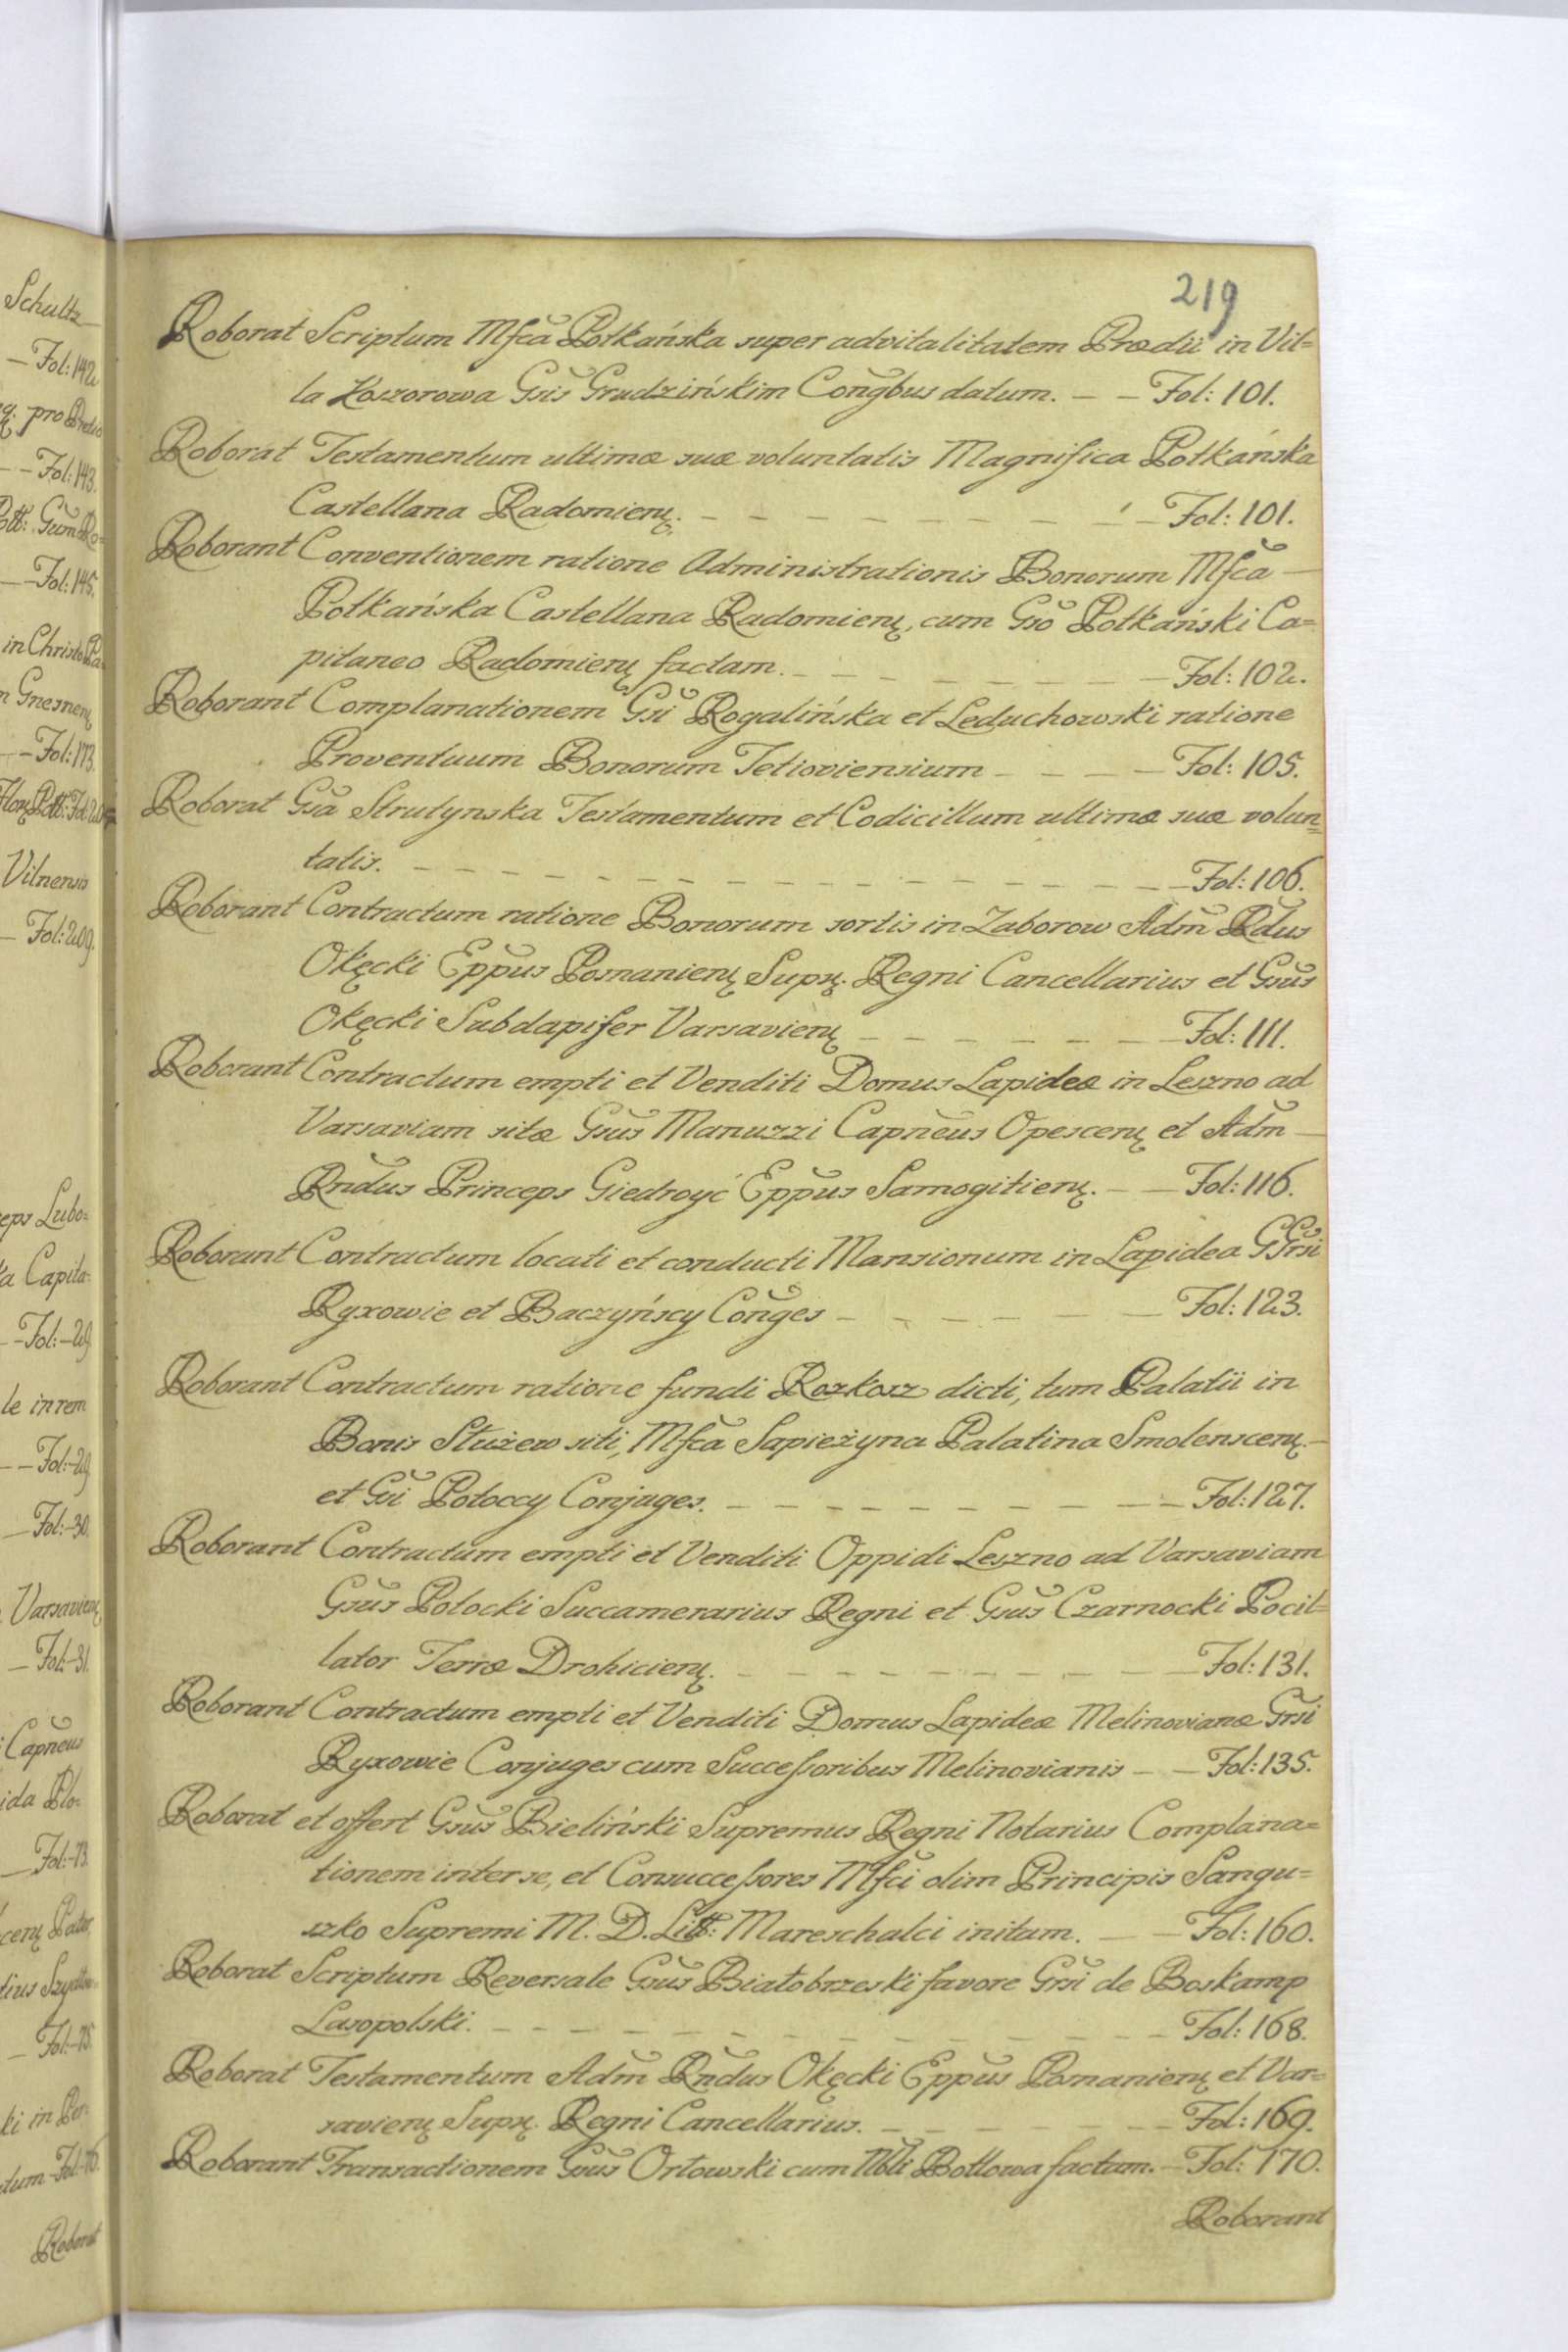 Schultz
Fol: 142
Fol: 143.
Fol: 145.
in Christo
Fol: 173.
Vilnensis
Fol: 209.
Lubo=
Capita=
Fol: 29
le in rem
Fol: 29
Fol: 30.
Fol: 31.
Capneus
Fol: 73.
Fol: 75.
Roborat
219
Roborat Scriptum Mfca Potkańska super advitalitatem Prædii in Vil=
la Koszorowa Gsis Grudzińskim Congbus datum. — — Fol: 101.
Roborat Testamentum ultimæ suæ voluntatis Magnifica Potkańska
Castellana Radomien. — Fol: 101.
Roborant Conventionem ratione Administrationis Bonorum Mfca —
Potkańska Castellana Radomien, cum Gso Potkański Ca=
pitaneo Radomien factam. — Fol: 102.
Roborant Complanationem Gsi Rogalińska et Leduchowski ratione
Proventuum Bonorum Tetioviensium — Fol: 105.
Roborat Gsa Strutynska Testamentum et Codicillum ultimæ suæ volun=
tatis. — Fol: 106.
Roborant Contractum ratione Bonorum sortis in Zaborow Adm Rdus
Okęcki Eppus Posnanien Supr. Regni Cancellarius et Gsus
Okęcki Subdapifer Varsavien — Fol: 111.
Roborant Contractum empti et Venditi Domus Lapideæ in Leszno ad
Varsaviam sitæ Gsus Manuzzi Capneus Opescen et Adm —
Rndus Princeps Giedroyć Eppus Samogitien. — — Fol: 116.
Roborant Contractum locati et conducti Mansionum in Lapidea GGrsi
Ryxowie et Baczyńscy Conges — Fol: 123.
Roborant Contractum ratione fundi Rozkosz dicti, tum Palatii in
Bonis Służew siti, Mfca Sapieżyna Palatina Smolenscen. —
et Gsi Potoccy Conjuges. — Fol: 127.
Roborant Contractum empti et Venditi Oppidi Leszno ad Varsaviam
Gsus Potocki Succamerarius Regni et Gsus Czarnocki Pocil=
lator Terræ Drohicien. — Fol: 131.
Roborant Contractum empti et Venditi Domus Lapideæ Melinovianæ Grsi
Ryxowie Conjuges cum Successoribus Melinovianis — — Fol: 135.
Roborat et offert Gsus Bieliński Supremus Regni Notarius Complana=
tionem inter se, et Consuccessores Mfci olim Principis Sangu=
szko Supremi M. D. Litt: Mareschalci initam. — — Fol: 160.
Roborat Scriptum Reversale Gsus Białobrzeski favore Grsi de Boskamp
Lasopolski. — Fol: 168.
Roborat Testamentum Adm Rndus Okęcki Eppus Posnanien et Var=
savien Supr. Regni Cancellarius. — Fol: 169.
Roborant Transactionem Gsus Orłowski cum Nbli Bottowa factam. — Fol: 170.
Roborant